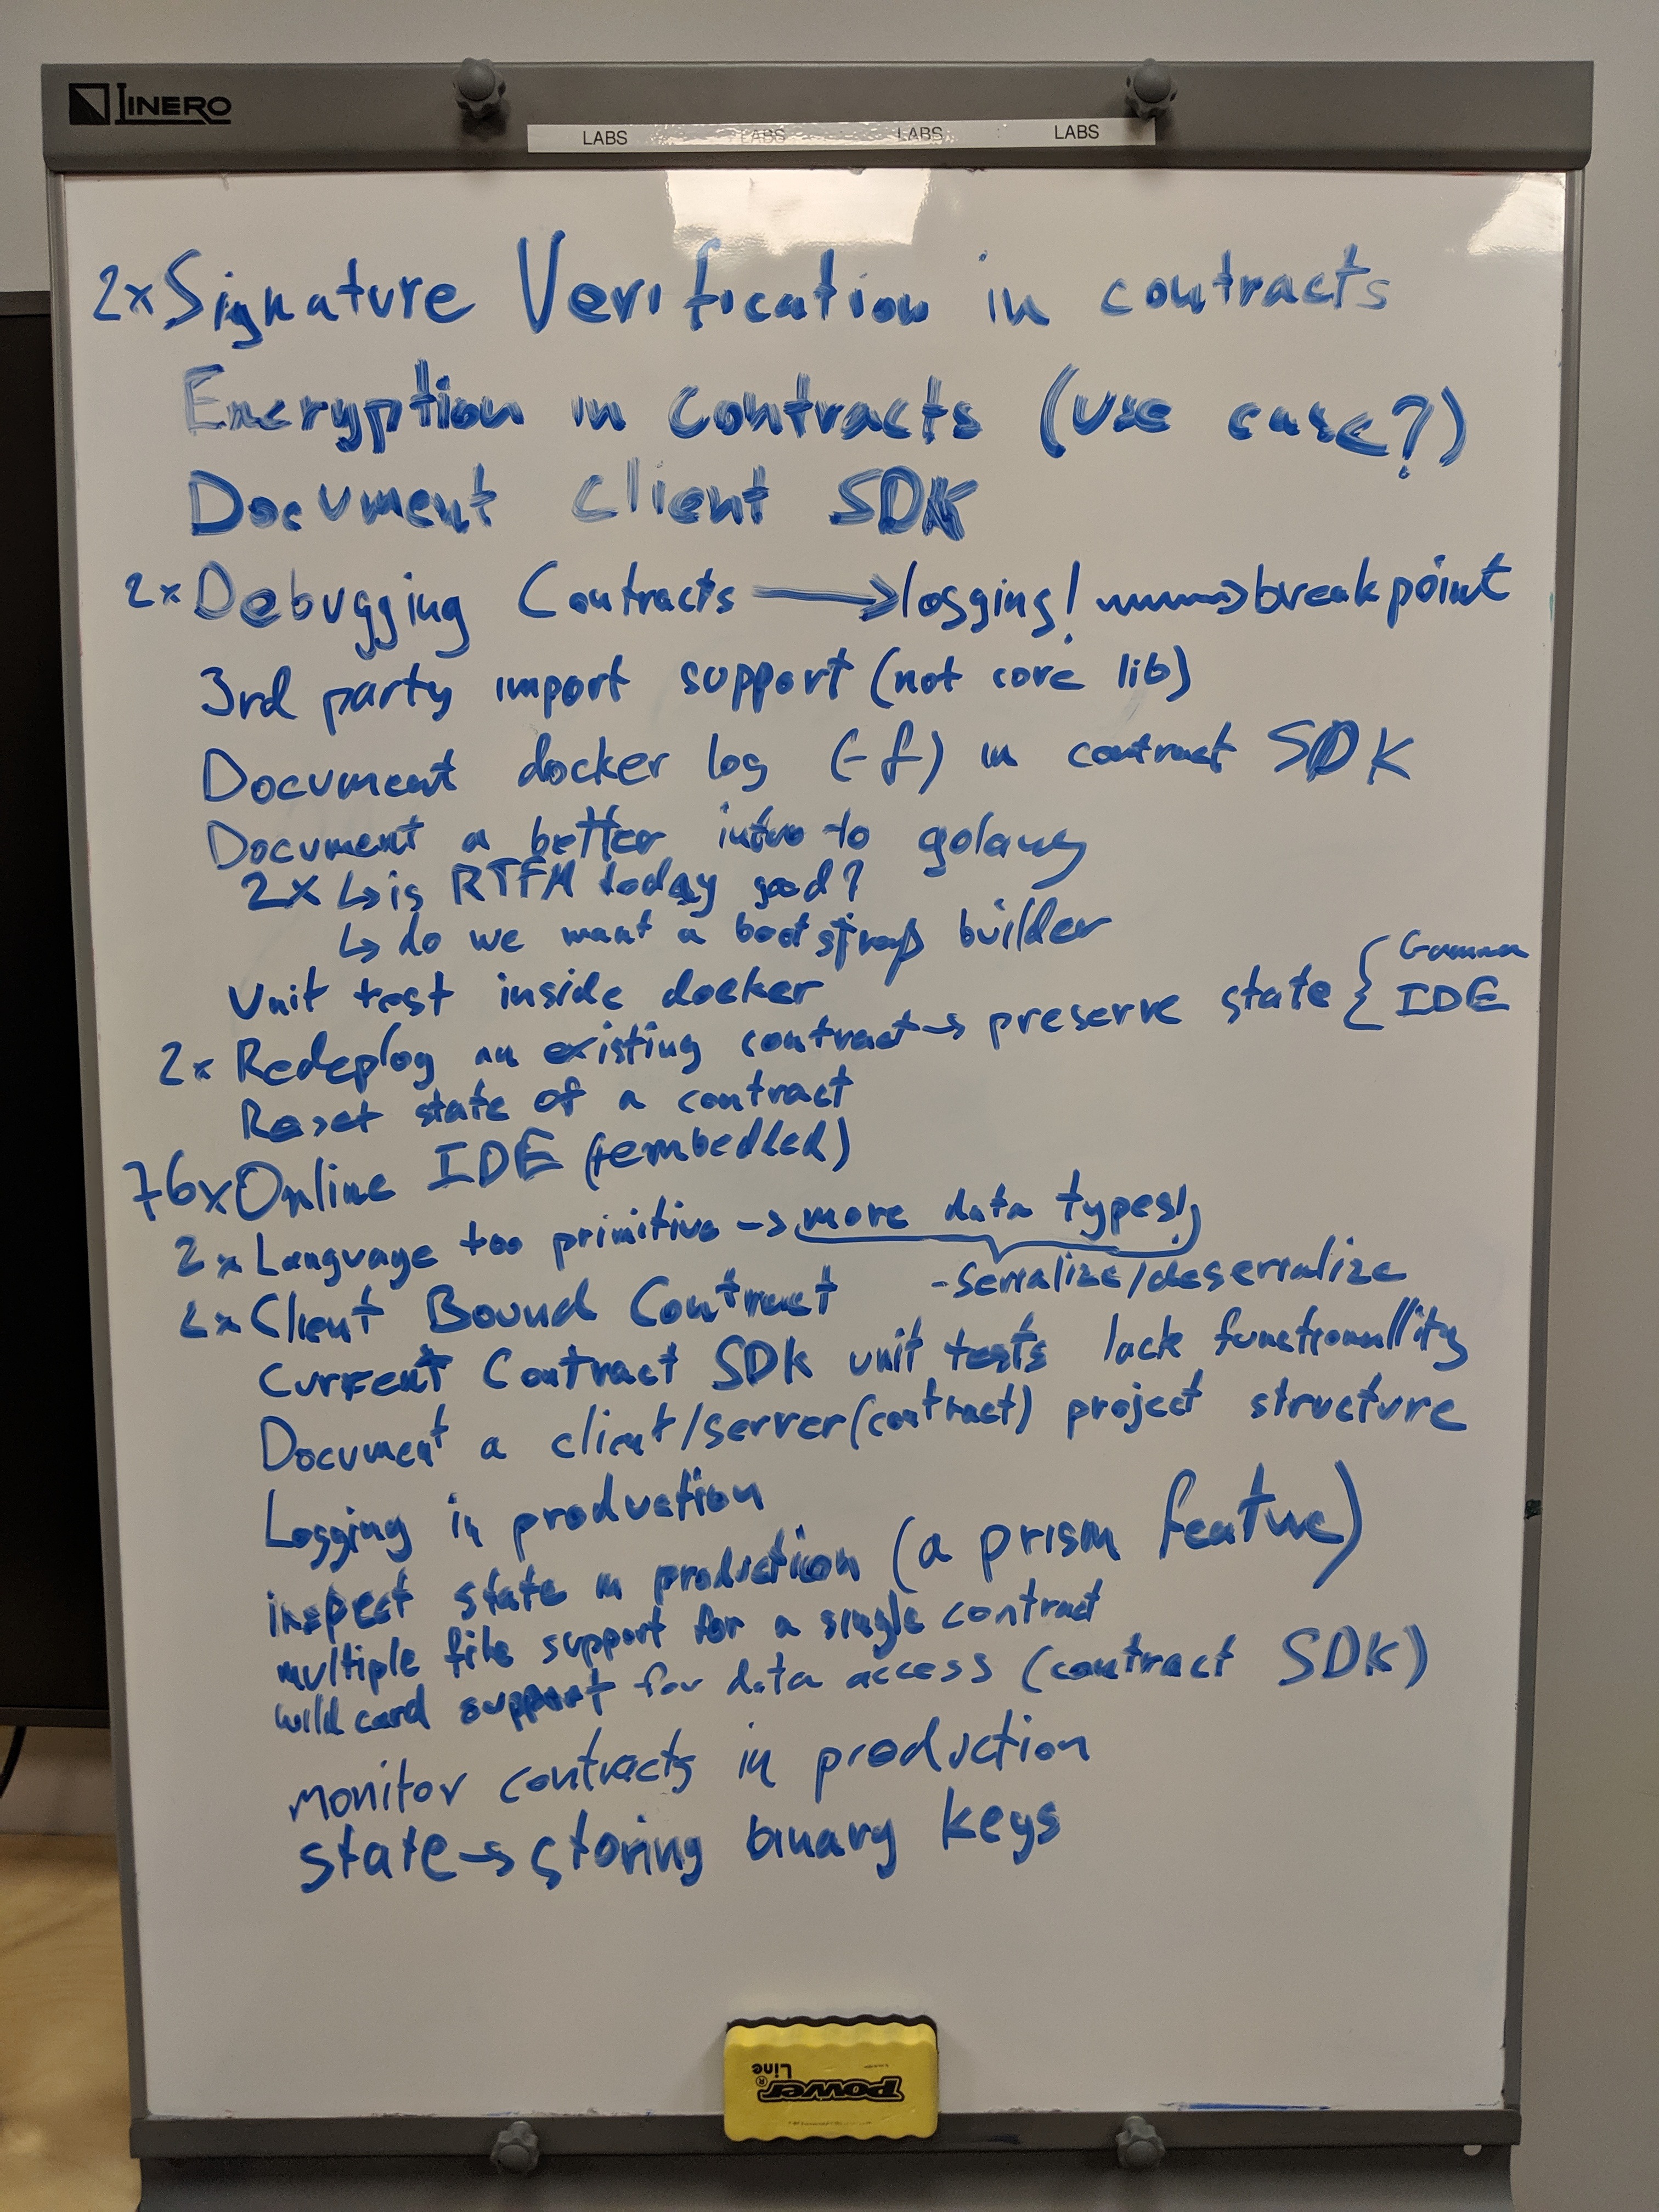 LINERO
LABS LABS LABS LABS
2x Signature Verification in contracts
Encryption in contracts (use case?)
Document client SDK
2x Debugging Contracts → logging! → breakpoint
3rd party import support (not core lib)
Document docker log (-f) in contract SDK
Document a better intro to golang
2x ↳ is RTFM today good?
↳ do we want a bootstrap builder
Unit test inside docker
2x Redeploy an existing contract → preserve state { Gamma
IDE
Reset state of a contract
76x Online IDE (+embedded)
2x Language too primitive → more data types!
- Serialize/deserialize
2x Client Bound Contract
Current Contract SDK unit tests lack functionallity
Document a client/server(contract) project structure
Logging in production
inspect state in production (a prism feature)
multiple file support for a single contract
wild card support for data access (contract SDK)
monitor contracts in production
state → storing binary keys
power®
Line